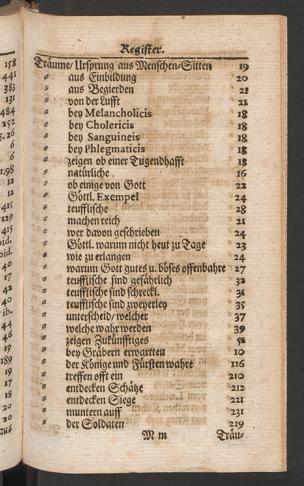 Register.
Träume/ Ursprung aus Menschen-Sitten 19
= aus Einbildung 20
= aus Begierden 21
= von der Lufft 21
= bey Melancholicis 18
= bey Cholericis 18
= bey Sanguineis 18
= bey Phlegmaticis 18
= zeigen ob einer Tugendhafft 18
= natürliche 16
= ob einige von Gott 22
= Göttl. Exempel 24
= teufflische 28
= machen reich 21
= wer davon geschrieben 24
= Göttl. warum nicht heut zu Tage 23
= wie zu erlangen 24
= warum Gott gutes u. böses offenbahre 27
= teufflische sind gefährlich 32
= teufflische sind schreckl. 31
= teufflische sind zweyerley 35
= unterscheid/ welcher 37
= welche wahr werden 39
= zeigen Zukünfftiges 51
= bey Gräbern erwartten 10
= der Könige und Fürsten wahre 126
= treffen offt ein 210
= entdecken Schätze 212
= entdecken Siege 221
= muntern auff 231
= der Soldaten 229
M m Träu-
158
441
383
131
484
252
5.26
6
6
1.98
12
12
415
129
415
bid.
bid.
40
17
42
40
ib.
44
46
19
189
19
17
18
20
20